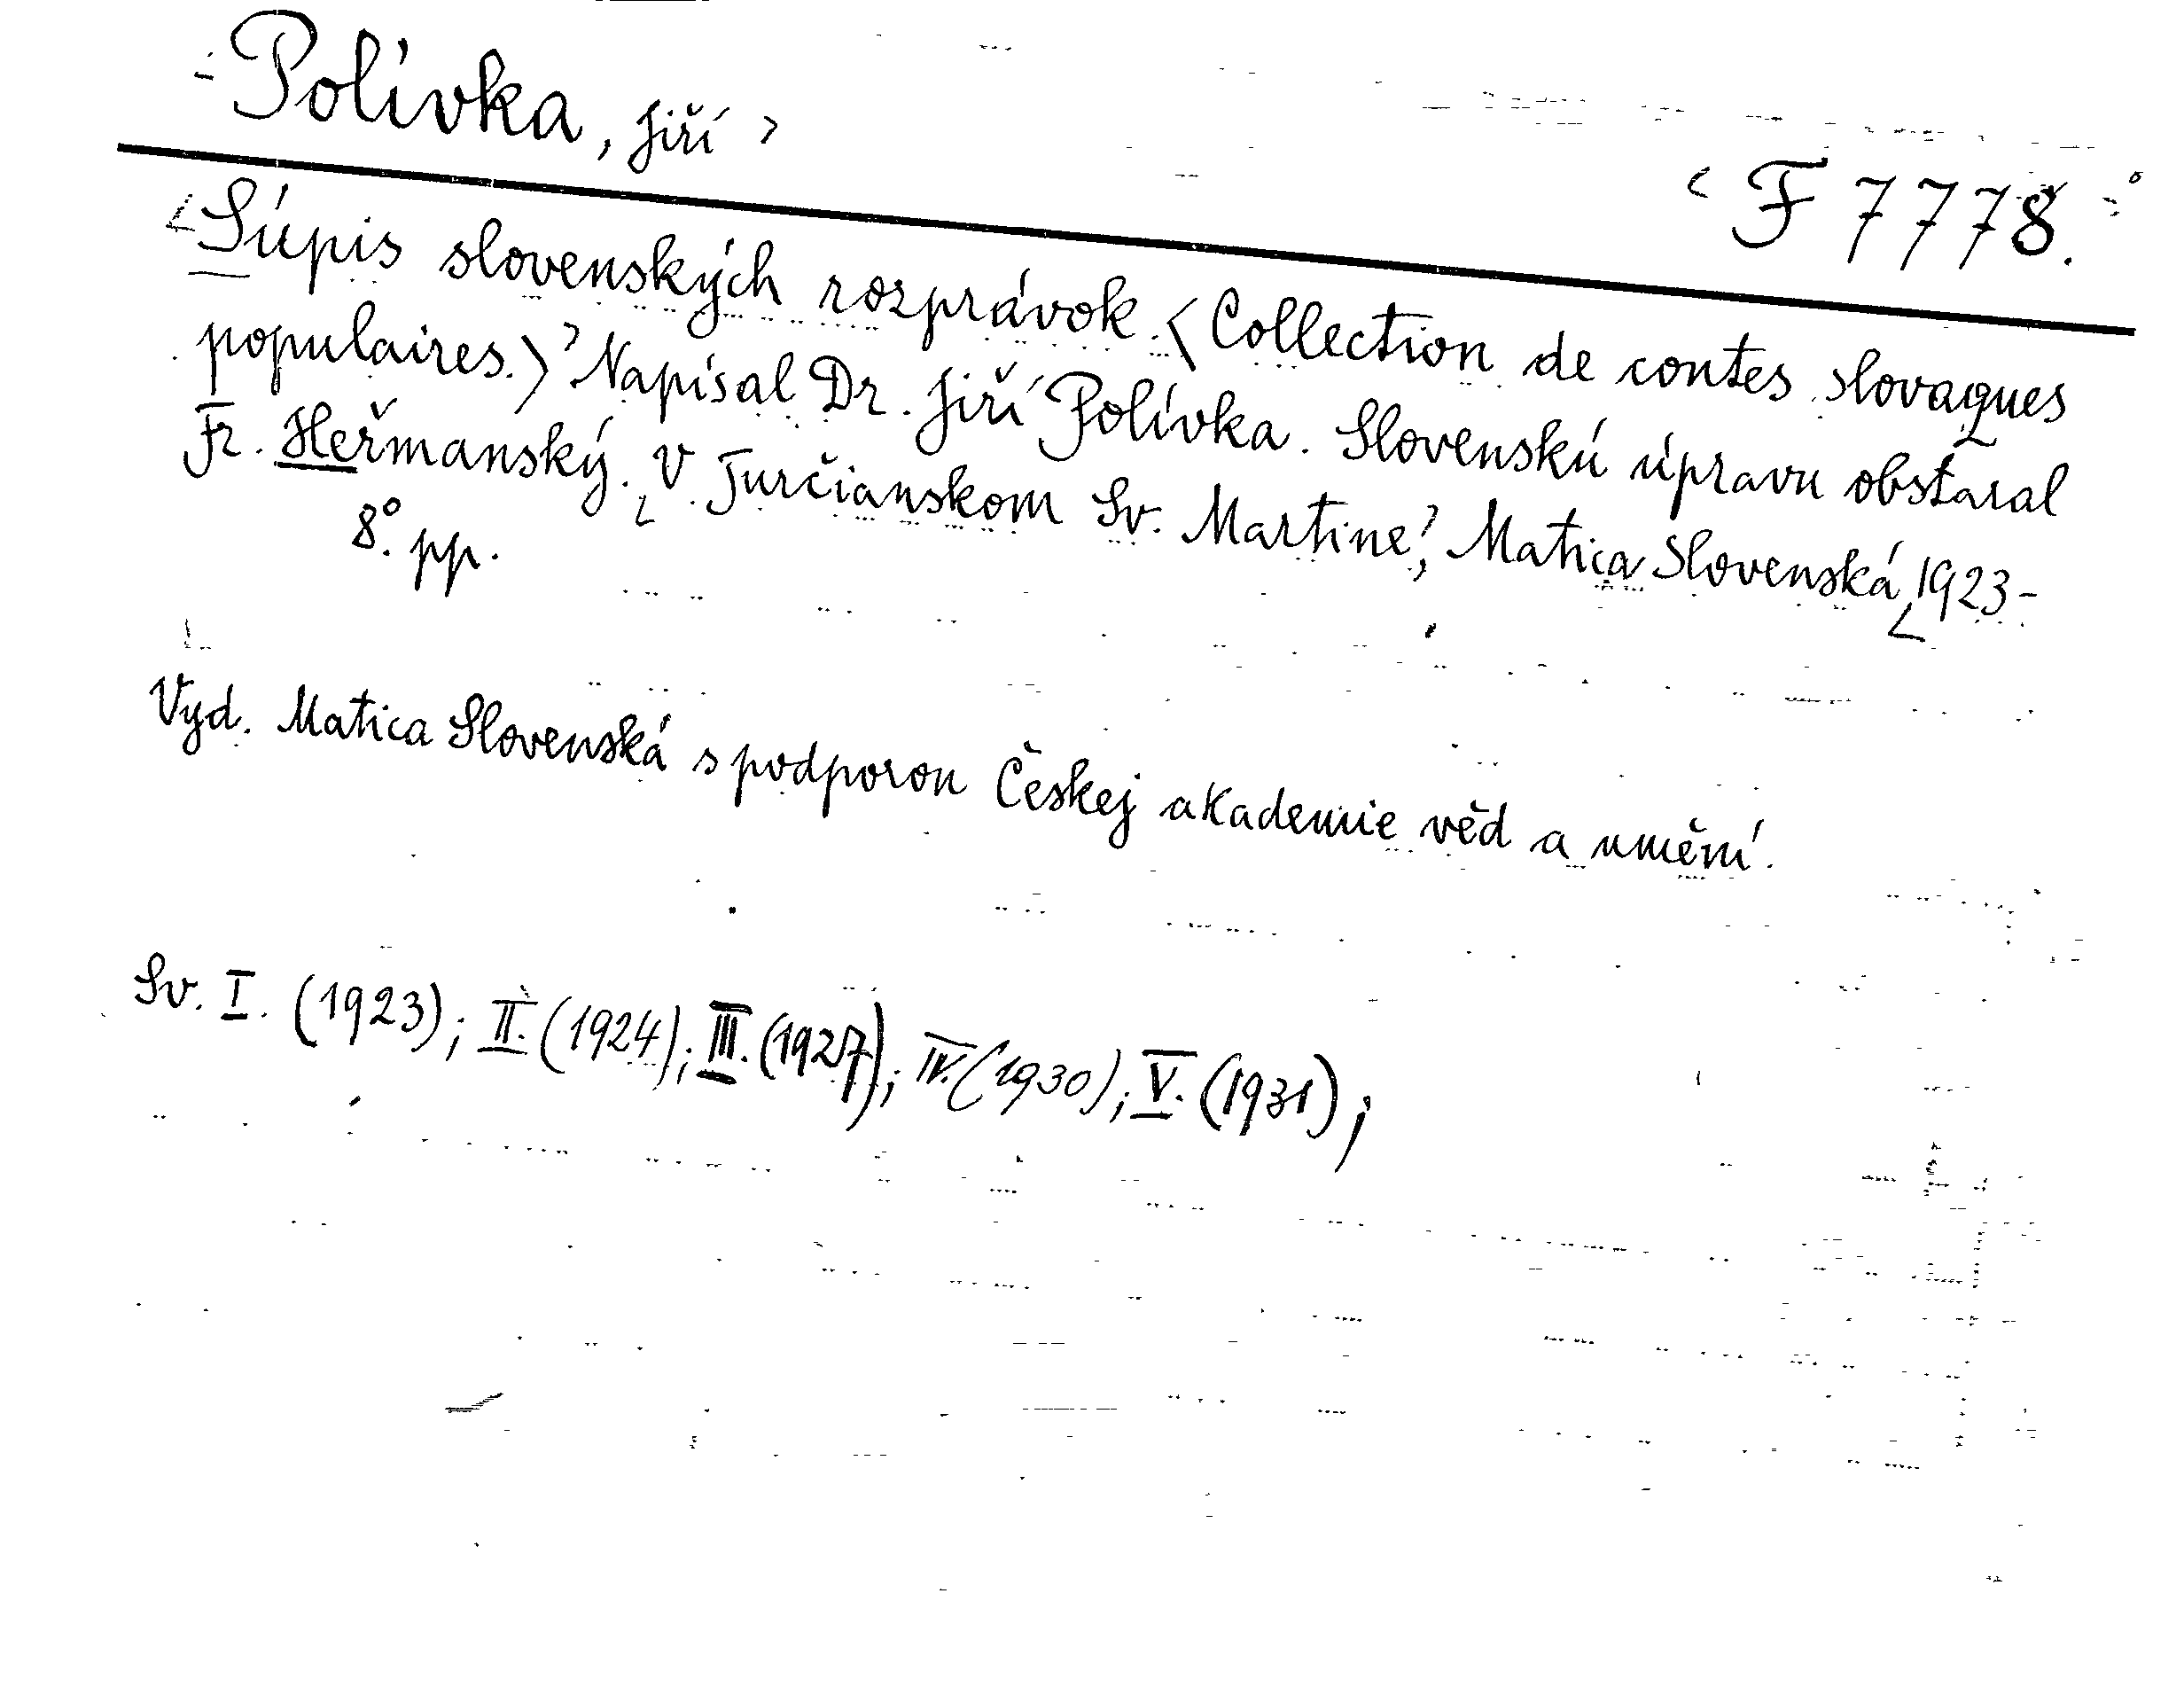 Polívka, Jiří
F 7778.
Súpis slovenských rozprávok. (Collection de contes slovaques
populaires.) Napísal Dr. Jiří Polívka. Slovenskú úpravu obstaral
Fr. Heřmanský. V Turčianskom Sv. Martine, Matica Slovenská, 1923-
8°. pp.
Vyd. Matica Slovenská s podporou Českej akademie věd a umění.
Sv. I. (1923); II. (1924); III. (1927); IV. (1930); V. (1931);